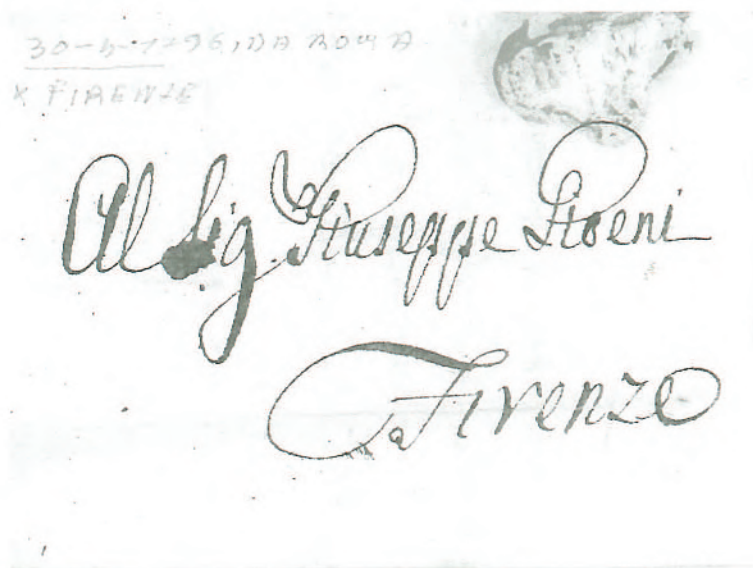 30-4-1796, DA ROMA
X FIRENZE
Al Sig. Giuseppe
Firenze